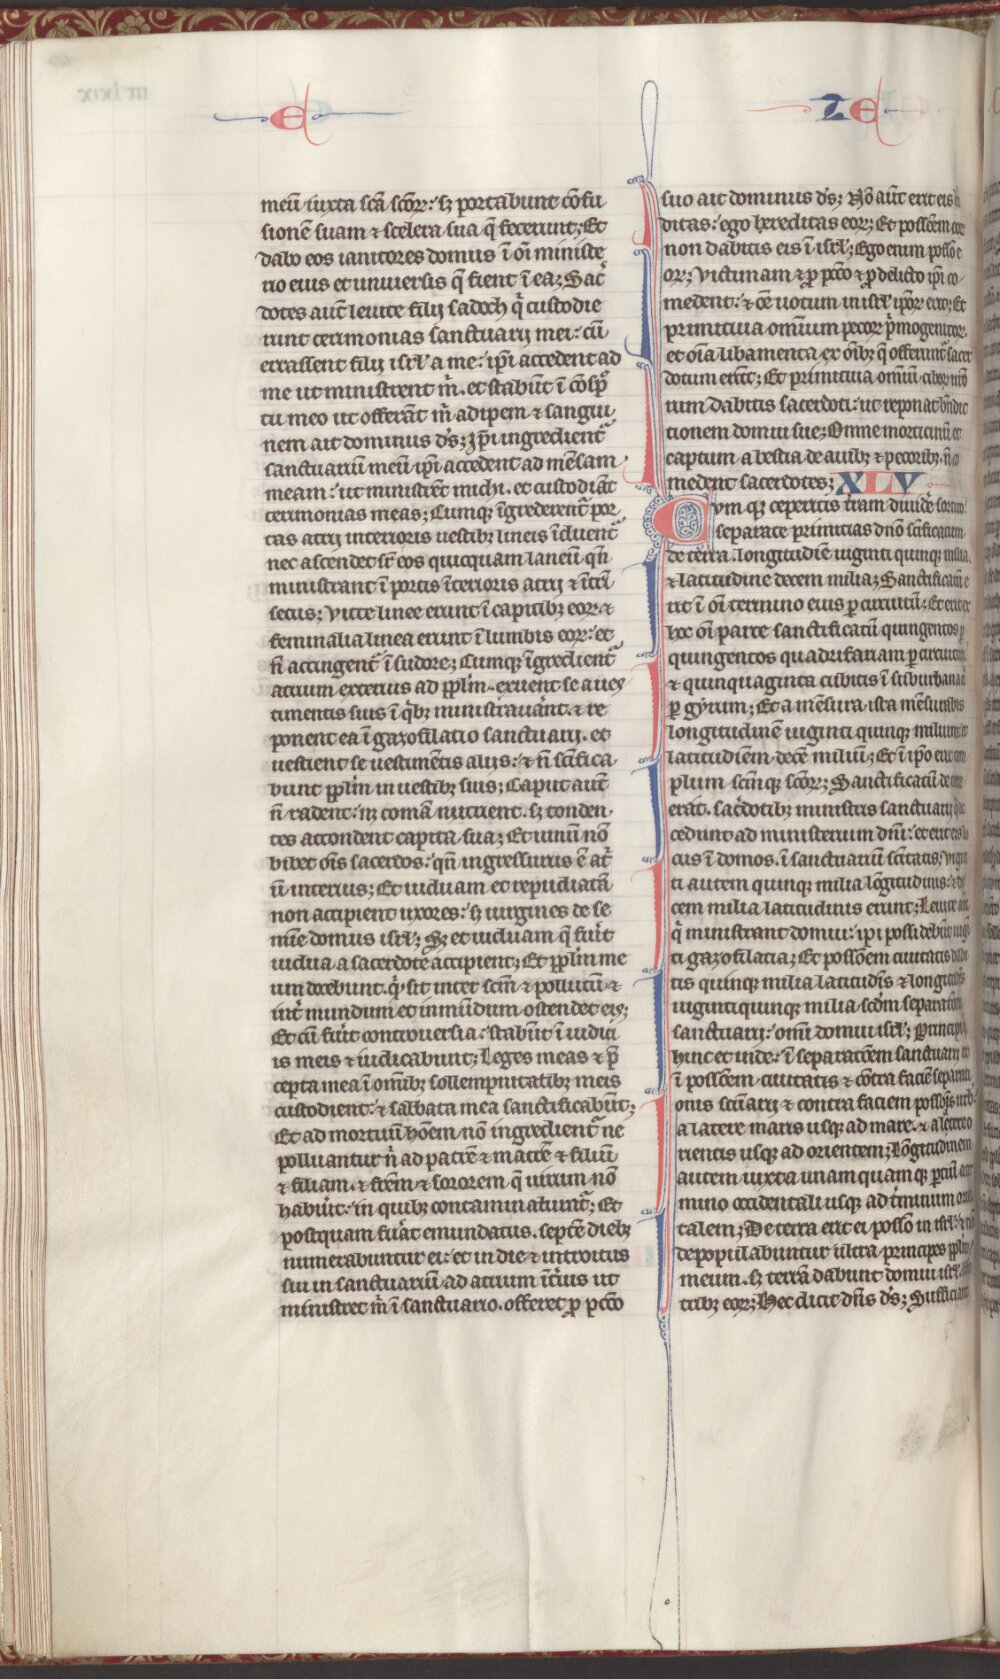 E
ZE
meū iuxta scā scōꝝ: sꝫ portabunt cōfu
sionē suam ⁊ scelera sua q̄ fecerunt; Et
dabo eos ianitores domus ī oī ministe
rio eius et uniuersis q̄ fient ī ea; Sac̄
dotes aut̄ leuite filij sadoch q̄ custodie
runt cerimonias sanctuarij mei: cū
errassent filij isrl̄ a me: ip̄i accedent ad
me ut ministrent m̄. et stabūt ī cōsp̄
tu meo ut offerāt m̄ adipem ⁊ sangui
nem ait dominus d̄s; Ip̄i ingredient᷑
sanctuariū meū ip̄i accedent ad mēsam
meam: ut ministrēt michi. et custodiāt
cerimonias meas; Cumqꝫ īgrederent᷑ por
tas atrij interioris uestibꝫ lineis īduent᷑
nec ascendet sr̄ eos quicquam laneū qn̄
ministrant ī portis īterioris atrij ⁊ ītrī
secus; Vitte linee erunt ī capitibꝫ eoꝝ ⁊
feminalia linea erunt ī lumbis eoꝝ: et
n̄ accingent᷑ ī sudore; Cumqꝫ īgredient᷑
atrium exterius ad pp̄lm̄. exuent se a ues
timentis suis ī q̄bꝫ ministrauāt. ⁊ re
ponent ea ī gazofilatio sanctuarij. et
uestient se uestimētis alijs: ⁊ n̄ scīfica
bunt pp̄lm̄ in uestibꝫ suis; Caput aut̄
n̄ radent: nꝫ comā nutrient. sꝫ tonden
tes attondent capita sua; Et uinū nō
bibet oīs sacerdos: qn̄ ingressurus ē at̄
ū interius; Et uiduam et repudiatā
non accipient uxores: sꝫ uirgines de se
mīe domus isrl̄; Sꝫ et uiduam q̄ fūit
uidua a sacerdote accipient; Et pp̄lm̄ me
um docebunt. q̄ sit inter scm̄ ⁊ pollutū ⁊
int̄ mundum et inmūdum ostendet eis;
Et cū fūit controuersia: stabūt ī iudici
is meis ⁊ iudicabunt; Leges meas ⁊ p̄
cepta mea ī omībꝫ sollempnitatibꝫ meis
custodient: ⁊ sabbata mea sanctificabūt;
Et ad mortuū hōem nō ingredient᷑ ne
polluantur n̄ ad patrē ⁊ matrē ⁊ filiū
⁊ filiam. ⁊ frēm ⁊ sororem q̄ uirum nō
habūit: in quibꝫ contaminabunt᷑; Et
postquam fūat emundatus. septē diebꝫ
numerabuntur ei: et in die ⁊ introitus
sui in sanctuariū ad atrium īt̄ius ut
ministret m̄ ī sanctuario. offeret ꝓ pctō
suo ait dominus d̄s; Nō aūt erit eis h
ditas: ego hereditas eoꝝ; Et possēem eoꝝ
non dabitis eis ī isrl̄; Ego enim possō e
oꝝ; Victimam ⁊ ꝓ pctō ⁊ ꝓ delicto ip̄i co
medent: ⁊ oē uotum in isrl̄ ip̄oꝝ erit; Et
primitiua omnium pecoꝝ p̄mogenitoꝝ.
et oīa libamenta ex oībꝫ q̄ offerunt᷑ sacer
dotum erūt; Et primitiua omniū ciboꝝ uro
rum dabitis sacerdoti: ut reponat bn̄dic
tionem domui sue; Omne morticinū et
captum a bestia de auibꝫ ⁊ pecoribꝫ. n̄ co
medent sacerdotes; XLV
Cum qꝫ ceperitis t̄ram diuidē sortito:
separate primitias dnō scīficatum
de terra. longitudiē uiginti quinqꝫ milia.
⁊ latitudine decem milia; Sanctificatū e
rit ī oī termino eius ꝑ circuitū; Et erit ex
hoc oī parte sanctificatū quingentos ꝑ
quingentos quadrifariam ꝑ circuitum:
⁊ quinquaginta cubitis ī suburbana e
ꝑ gyrum; Et a mēsura ista mēsurabis
longitudinē uiginti quinqꝫ milium et
latitudiēm decē miliū; Et ī ip̄o erit tem
plum scm̄qꝫ scōꝝ; Sanctificatū de terra
erāt. sac̄dotibꝫ ministris sanctuarij q̄ ac
cedunt ad ministerium dnī: et erit eis lo
cus ī domos. ī sanctuariū scītatis; Vigin
ti autem quinqꝫ milia lōgitudinis: ⁊ de
cem milia latitudinis erunt; Leuite aūt
q̄ ministrant domui: ip̄i possidebūt uigī
ti gazofilatia; Et possōem ciuitatis dabi
tis quinqꝫ milia latitudīs ⁊ longitudīs
uiginti quinqꝫ milia. scdm separatōem
sanctuarij: omī domui isrl̄; Principi qꝫ
hinc et inde: ī separatōem sanctuarij et
ī possōem ciuitatis ⁊ cōtra faciē separati
onis scūarij ⁊ contra faciem possōis urb
a latere maris usqꝫ ad mare. ⁊ a latere o
rientis usqꝫ ad orientem; Lōgitudinem
autem iuxta unam quamqꝫ partiū a ter
mino occidentali usqꝫ ad t̄minum orien
talem; De terra erit ei possō in isrl̄: ⁊ nō
depopulabuntur ultra principes pp̄lm̄
meum. sꝫ terrā dabunt domui isrl̄. scdm
tribꝫ eoꝝ; Hec dicit dn̄s d̄s; Sufficiat